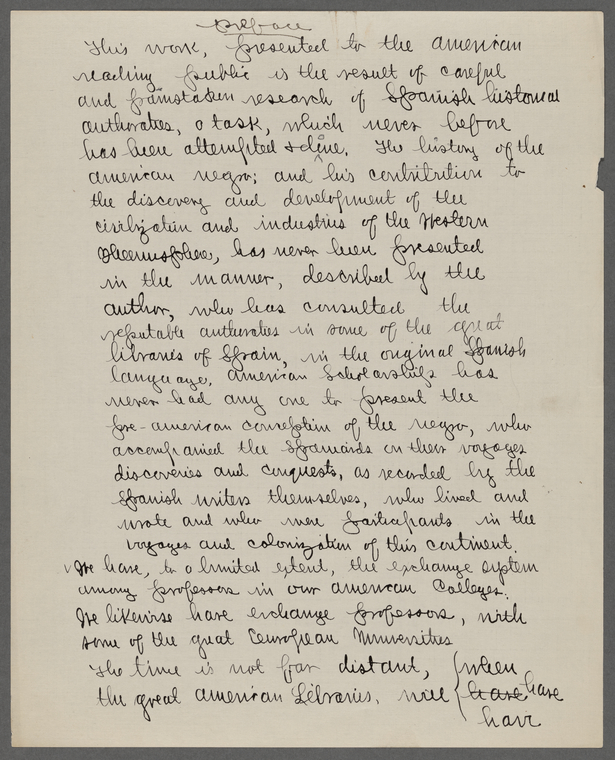 preface
This work, presented to the american
reading public is the result of careful
and painstaken research of Spanish historical
authorates, a task, which never before
has been attempted & done. The history of the
american negro; and his contribution to
the discovery and development of the
civilization and industries of the Western
has never been presented
in the manner, described by the
author, who has consulted the
reputable authorates in some of the great
libraries of Spain, in the original Spanish
language, american Scholarships has
never had any one to present the
pre-american conception of the negro, who
accompanied the Spaniards on their voyages
discoveries and conquests, as recorded by the
Spanish writers themselves, who lived and
wrote and who were participants in the
voyages and colonization of this continent.
We have, to a limited extent, the exchange system
among professors in our american Colleges.
We likewise have exchange professors, with
some of the great European Universities
The time is not far distant, when
the great american Libraries, will have have
have